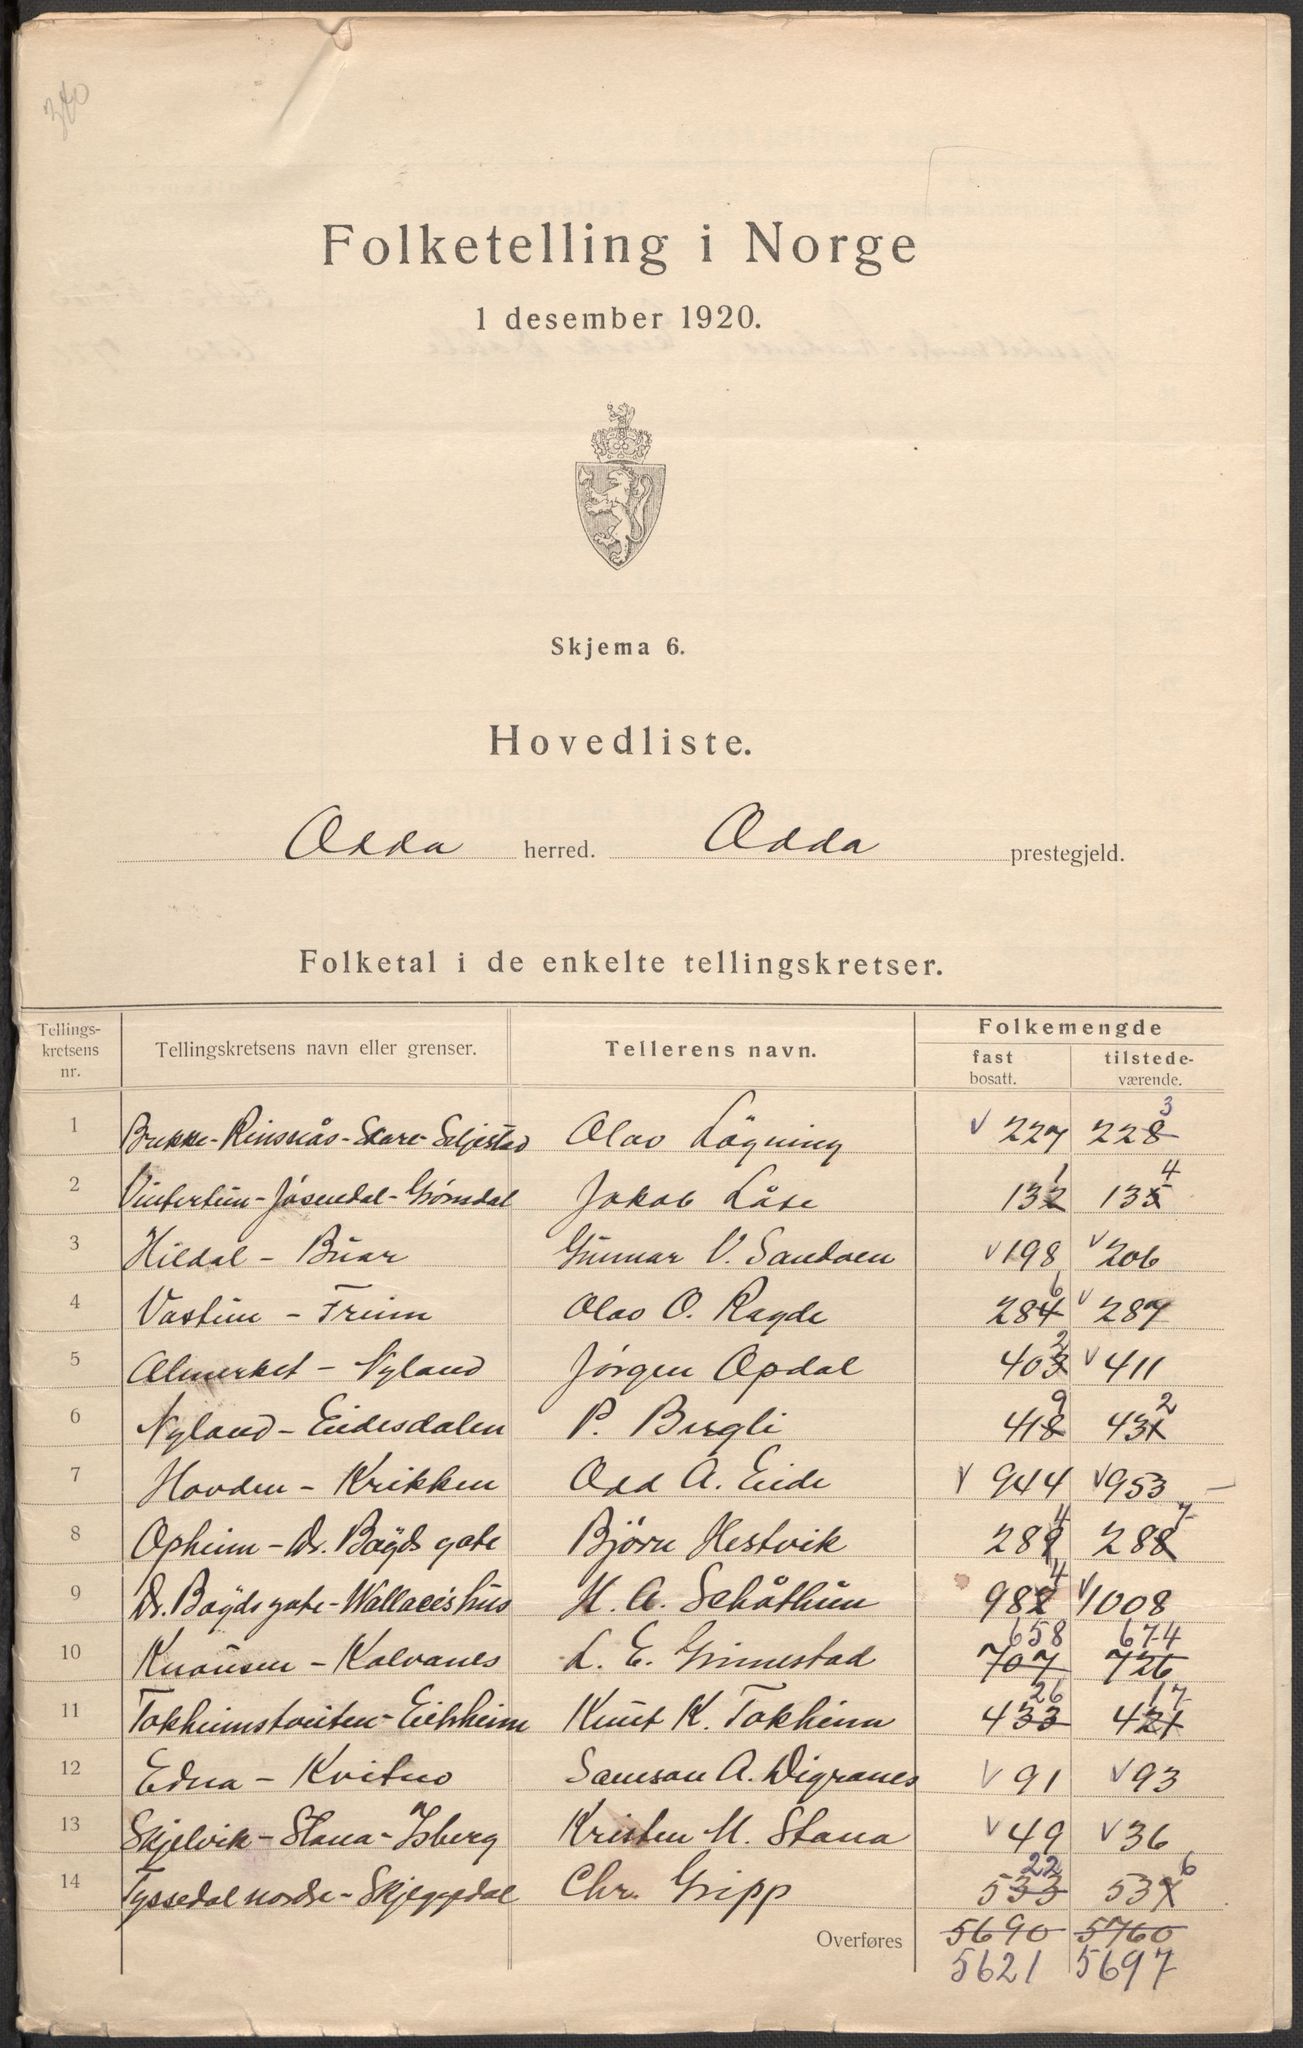 340
Folketelling i Norge
1 desember 1920.
Skjema 6.
Hovedliste.
Odda herred. Odda prestegjeld.
Folketal i de enkelte tellingskretser.
Tellings-kretsens nr. Tellingskretsens navn eller grenser. Tellerens navn. Folkemengde
fast bosatt. tilstede-værende.
1 Brekke-Rinsnås-Skare-Seljestad Olav Lögning v 227 228 3
2 Vintertun-Jösendal-Grönsdal Jakob Låte 132 1 135 4
3 Hildal - Buar Gunnar V. Sandven v 198 v 206
4 Vastun - Freim Olav O. Ragde 284 6 v 287
5 Almerket - Nyland Jørgen Opdal 403 2 v 411
6 Nyland - Eidesdalen P. Bergli 418 9 431 2
7 Hovden - Krikken Odd A. Eide v 944 v 953
8 Opheim - Dr. Bøyds gate Bjørn Hestvik 289 4 288 7
9 Dr. Bøyds gate - Wallaceshus H. A. Schåthun 982 4 v 1008
10 Knausen - Kalvanes L. E. Grimestad 707 658 726 674
11 Tokheimstveiten - Eitrheim Knut K. Tokheim 433 26 421 17
12 Edna - Kvitno Samson A. Digranes v 91 v 93
13 Skjelvik - Stana - Isberg Kristen M. Stana v 49 v 36
14 Tyssedal nordre - Skjeggedal Chr. Gripp 533 22 537 6
Overføres 5690 5760
5621 5697